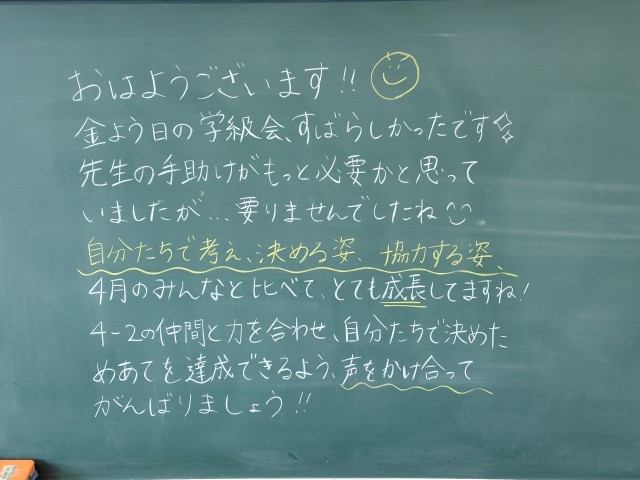 おはようございます!!
金よう日の学級会、すばらしかったです
先生の手助けがもっと必要かと思って
いましたが…要りませんでしたね
自分たちで考え、決める姿、協力する姿、
4月のみんなと比べて、とても成長してますね!
4-2の仲間と力を合わせ、自分たちで決めた
めあてを達成できるよう、声をかけ合って
がんばりましょう!!